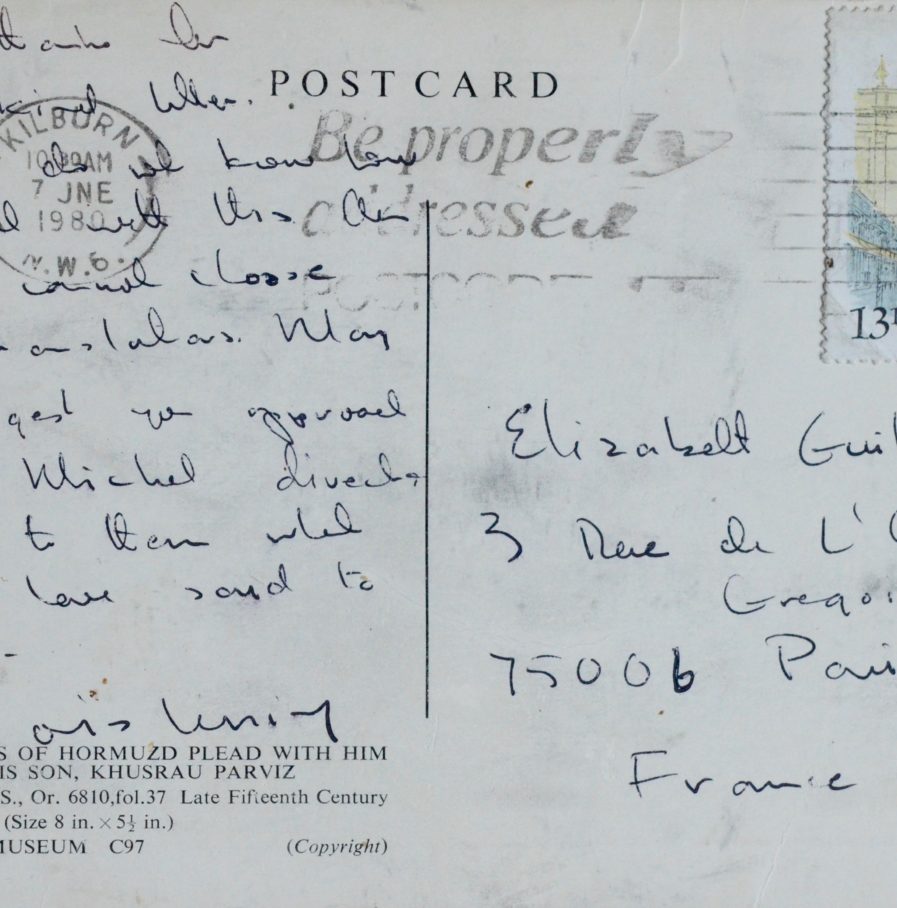 thanks for
kind letter.
POSTCARD
KILBURN
10 30AM
7 JNE
1980
N.W.6.
Be properly
addressed
POSTCODE IT
do we know how
with this. Am
cannot choose
translators. May
you approach
Michel directly
to them what
have said to
Doris Lessing
S OF HORMUZD PLEAD WITH HIM
IS SON, KHUSRAU PARVIZ
S., Or. 6810,fol.37 Late Fifteenth Century
(Size 8 in. × 5½ in.)
MUSEUM C97 (Copyright)
13
Elizabeth Gui
3 Rue de L'
Grego
75006 Pari
France